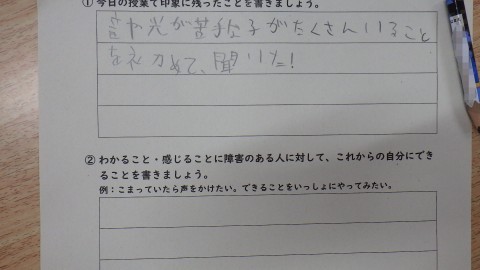 ① 今日の授業で印象に残ったことを書きましょう。
音や光が苦手な子がたくさんいること
を初めて、聞いた!
② わかること・感じることに障害のある人に対して、これからの自分にでき
ることを書きましょう。
例:こまっていたら声をかけたい。できることをいっしょにやってみたい。